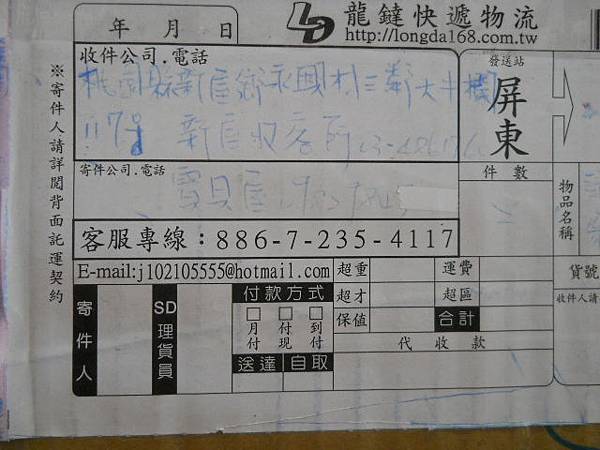 年 月 日
龍鍵快遞物流
http://longda168.com.tw
收件公司.電話
桃園縣新屋鄉永國村三鄰大牛欄
117號 新屋收容所
發送站
屏東
寄件公司.電話
寶貝屋
件數
物品名稱
※寄件人請詳閱背面託運契約
客服專線：886-7-235-4117
E-mail:j102105555@hotmail.com
超重
運費
貨號
寄件人
SD理貨員
付款方式
超才
超區
收件人請
月付
付現
到付
保值
合計
送達
自取
代收款